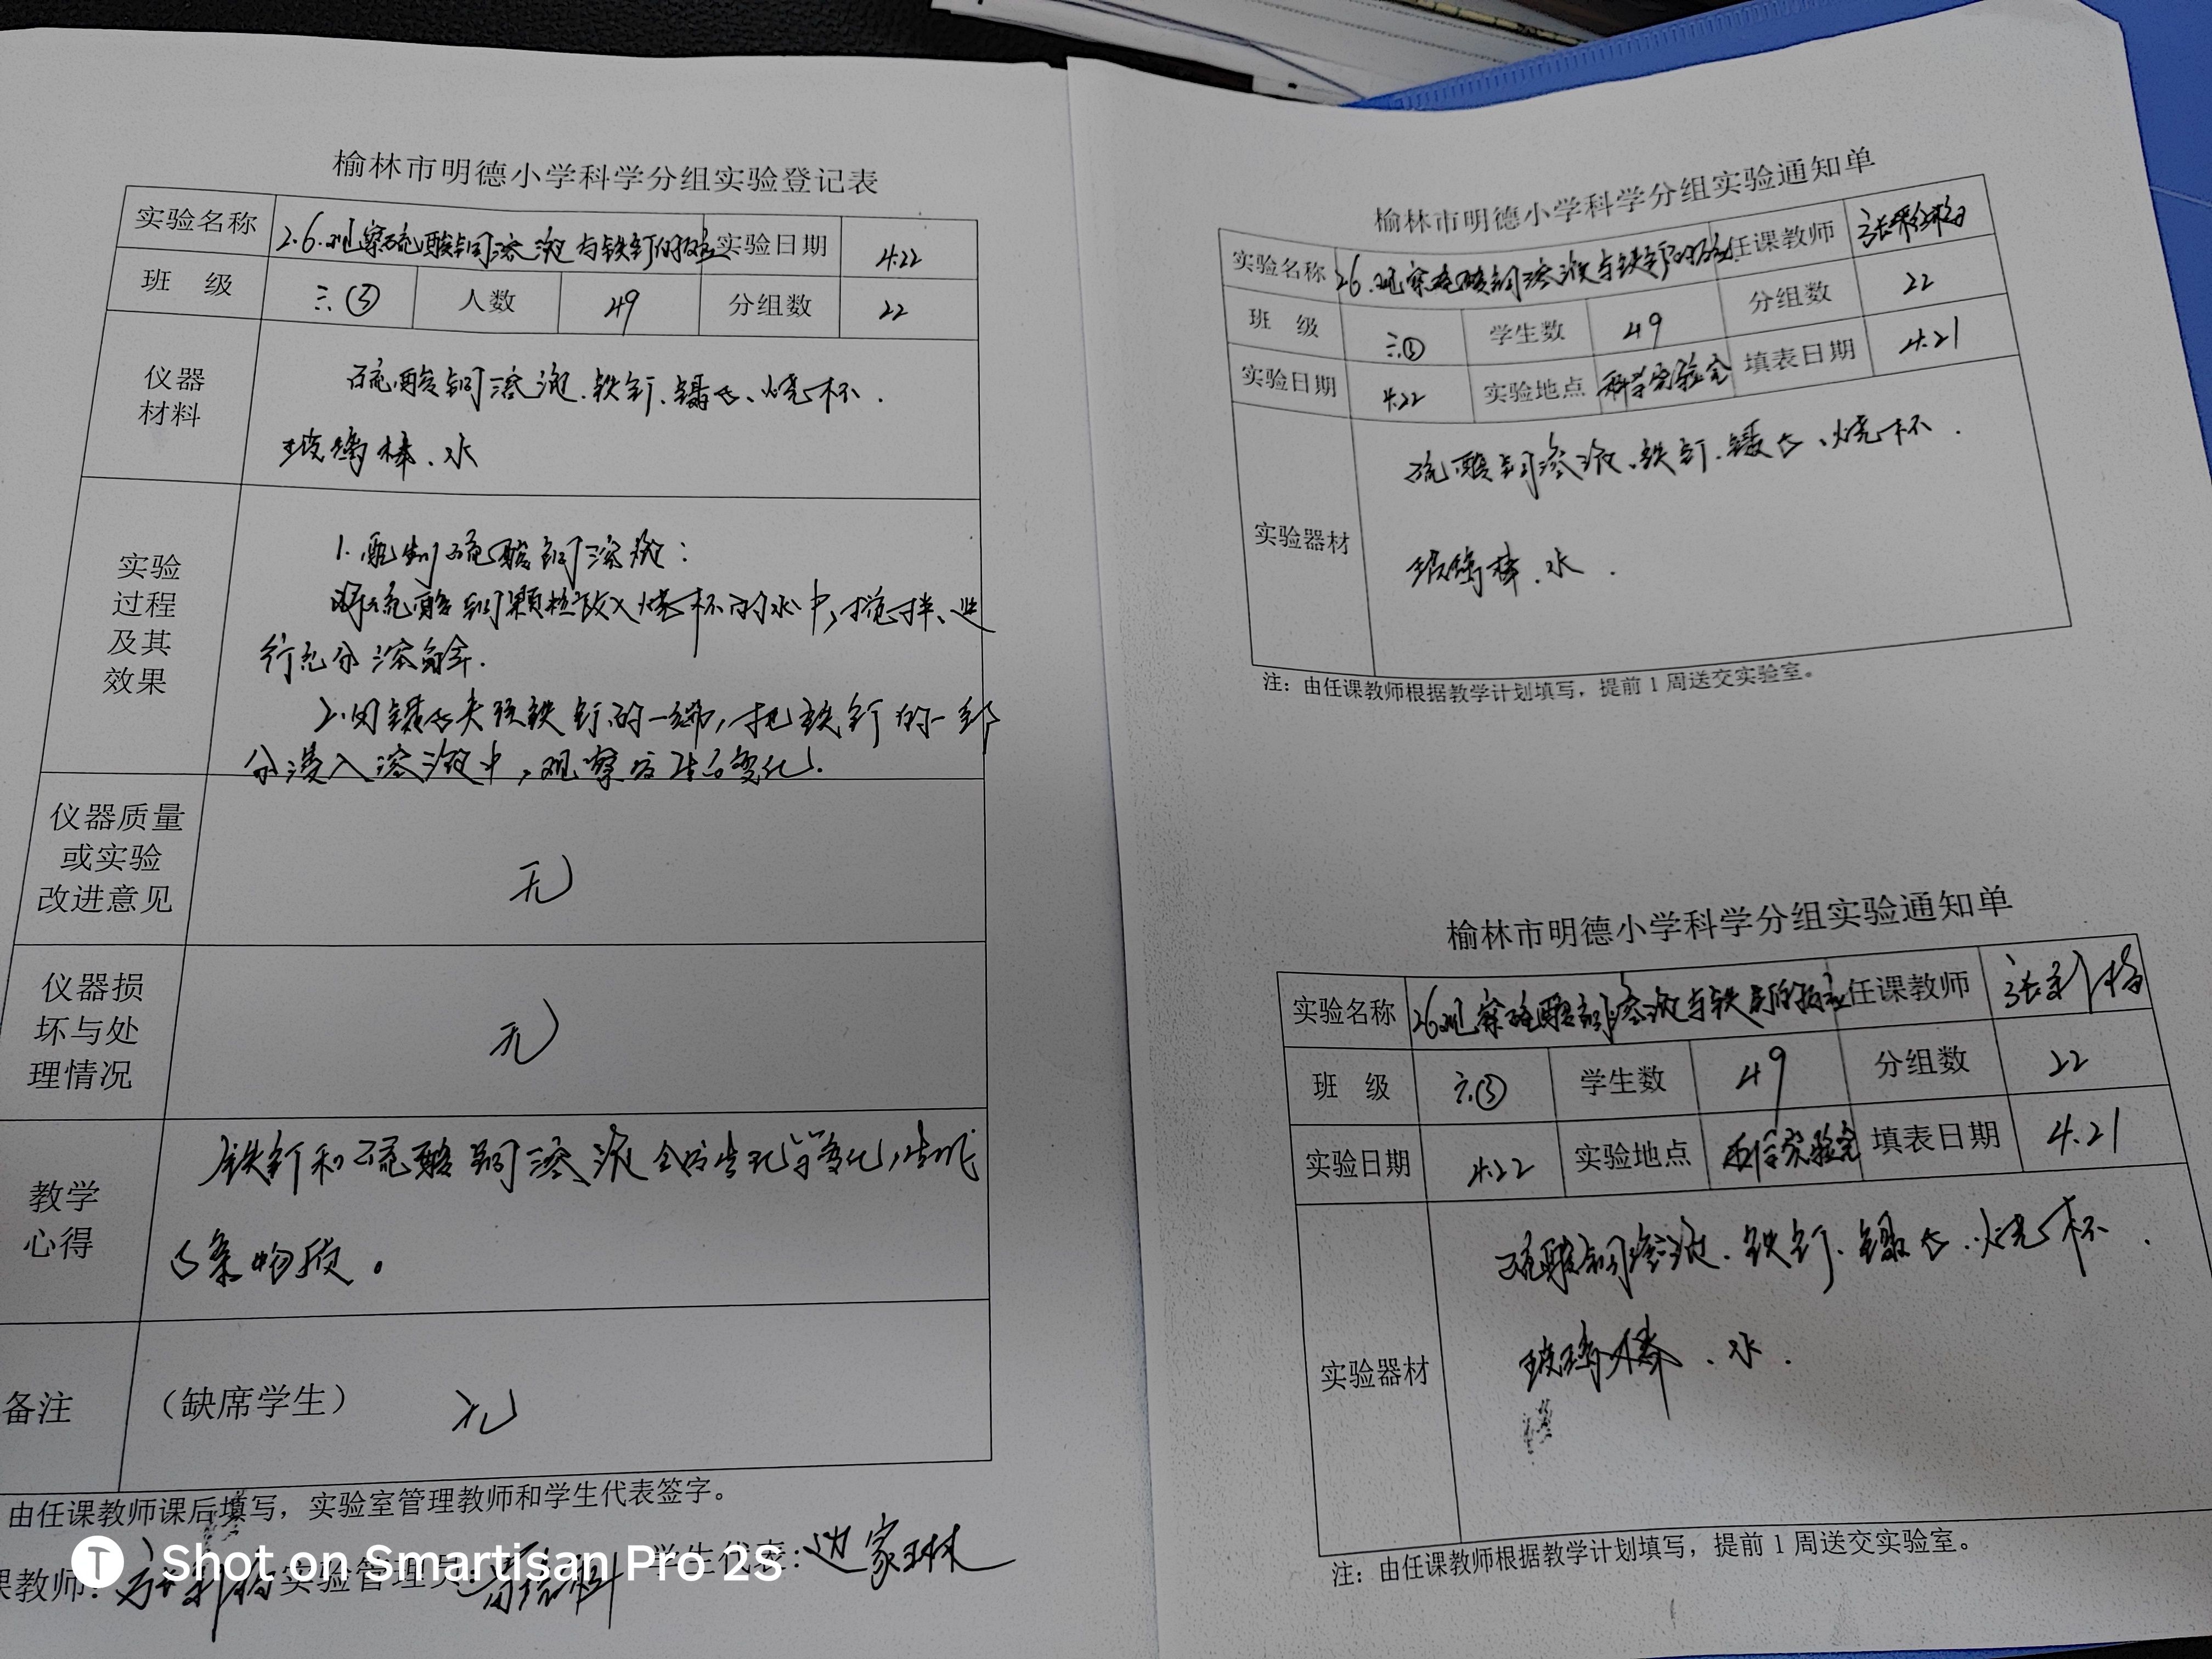 榆林市明德小学科学分组实验登记表
实验名称 2.6.观察硫酸铜溶液与铁钉的反应 实验日期 4.22
班 级 六.③ 人数 49 分组数 22
仪器材料 硫酸铜溶液.铁钉、镊子、烧杯.
玻璃棒、水
实验过程及其效果 1.配制硫酸铜溶液:
将硫酸铜颗粒放入烧杯的水中,搅拌、进
行充分溶解.
2.用镊子夹住铁钉的一端,把铁钉的一部
分浸入溶液中,观察发生的变化.
仪器质量或实验改进意见 无
仪器损坏与处理情况 无
教学心得 铁钉和硫酸铜溶液会发生化学变化,生成
物质。
备注 (缺席学生) 无
由任课教师课后填写,实验室管理教师和学生代表签字。
课教师: 实验管理员: 学生代表:边家琳
Shot on Smartisan Pro 2S
榆林市明德小学科学分组实验通知单
实验名称 2.6.观察硫酸铜溶液与铁钉的反应 任课教师
班 级 六.③ 学生数 49 分组数 22
实验日期 4.22 实验地点 科学实验室 填表日期 4.21
实验器材 硫酸铜溶液、铁钉.镊子、烧杯.
玻璃棒.水.
注:由任课教师根据教学计划填写,提前1周送交实验室。
榆林市明德小学科学分组实验通知单
实验名称 2.6观察硫酸铜溶液与铁钉的反应 任课教师
班 级 六.③ 学生数 49 分组数 22
实验日期 4.22 实验地点 科学实验室 填表日期 4.21
实验器材 硫酸铜溶液.铁钉.镊子.烧杯.
玻璃棒.水.
注:由任课教师根据教学计划填写,提前1周送交实验室。